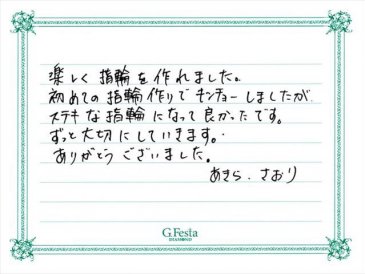 楽しく指輪を作れました。
初めての指輪作りでキンチョーしましたが
ステキな指輪になって良かったです。
ずっと大切にしていきます。
ありがとうございました。
あきら、さおり
G.Festa
DIAMOND